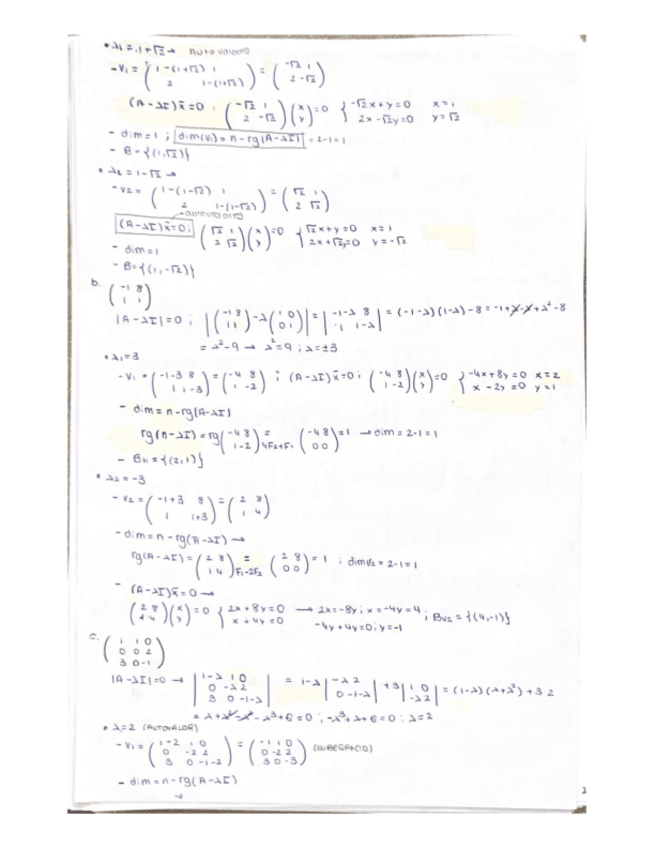 • λ₁ = 1+√2 →
- V₁ = (1-(1+√2) 1 / 2 1-(1+√2)) = (-√2 1 / 2 -√2)
(A-λI)x̄=0 ; (-√2 1 / 2 -√2)(x / y)=0 { -√2x+y=0 x=1 / 2x-√2y=0 y=√2
- dim=1 ; dim(V₁)=n-rg|A-λI| = 2-1=1
- B={(1,√2)}
• λ₂=1-√2 →
- V₂= (1-(1-√2) 1 / 2 1-(1-√2)) = (√2 1 / 2 √2)
(A-λI)x̄=0 ; (√2 1 / 2 √2)(x / y)=0 { √2x+y=0 x=1 / 2x+√2y=0 y=-√2
- dim=1
- B={(1,-√2)}
b. (-1 8 / 1 1)
|A-λI|=0 ; |(-1 8 / 1 1)-λ(1 0 / 0 1)| = |-1-λ 8 / 1 1-λ| = (-1-λ)(1-λ)-8 = -1+λ-λ+λ²-8
= λ²-9 → λ²=9 ; λ=±3
• λ₁=3
- V₁ = (-1-3 8 / 1 1-3) = (-4 8 / 1 -2) ; (A-λI)x̄=0 ; (-4 8 / 1 -2)(x / y)=0 { -4x+8y=0 x=2 / x-2y=0 y=1
- dim=n-rg(A-λI)
rg(A-λI)=rg(-4 8 / 1 -2) = 4F₂+F₁ (-4 8 / 0 0)=1 → dim=2-1=1
- Bv₁={(2,1)}
• λ₂=-3
- V₂=(-1+3 8 / 1 1+3)=(2 8 / 1 4)
- dim=n-rg(A-λI) →
rg(A-λI)=(2 8 / 1 4) = F₁-2F₂ (2 8 / 0 0)=1 ; dimV₂=2-1=1
- (A-λI)x̄=0 →
(2 8 / 1 4)(x / y)=0 { 2x+8y=0 / x+4y=0 → 2x=-8y ; x=-4y=4 ; Bv₂={(4,-1)}
-4y+4y=0 ; y=-1
c. (1 1 0 / 0 0 2 / 3 0 -1)
|A-λI|=0 → |1-λ 1 0 / 0 -λ 2 / 3 0 -1-λ| = 1-λ |-λ 2 / 0 -1-λ| +3 |1 0 / -λ 2| = (1-λ)(λ+λ²)+3·2
= λ+λ²-λ²-λ³+6=0 ; -λ³+λ+6=0 ; λ=2
• λ=2 (AUTOVALOR)
- V₁=(1-2 1 0 / 0 -2 2 / 3 0 -1-2) = (-1 1 0 / 0 -2 2 / 3 0 -3) (SUBESPACIO)
- dim=n-rg(A-λI)
→
2